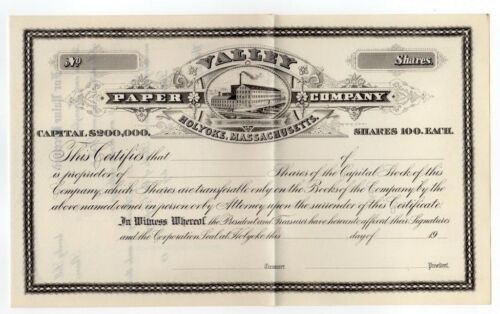 No Shares.
VALLEY
PAPER COMPANY
HOLYOKE, MASSACHUSETTS.
CAPITAL $200,000. SHARES 100. EACH.
This Certifies that of
is proprietor of Shares of the Capital Stock of this
Company, which Shares are transferable only on the Books of the Company by the
above named owner in person or by Attorney upon the surrender of this Certificate.
In Witness Whereof, the President and Treasurer have hereunto affixed their Signatures
and the Corporation Seal at Holyoke this day of 19
Treasurer. President.